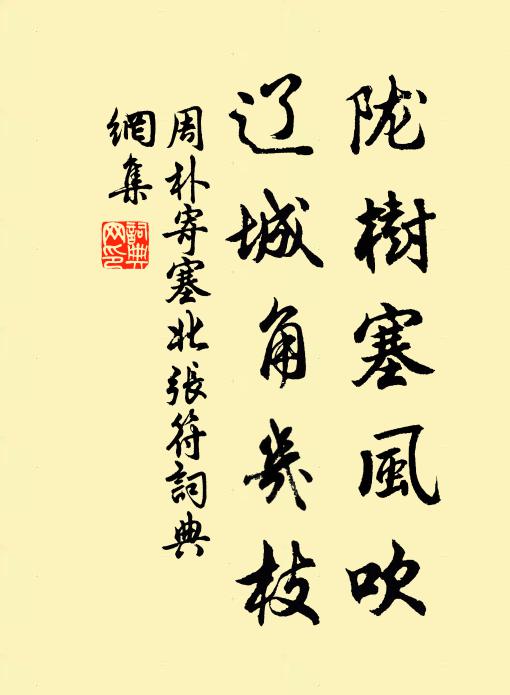 陇樹塞風吹
辽城角幾枝
周朴寄塞北張符詞典
網集
詞典網印